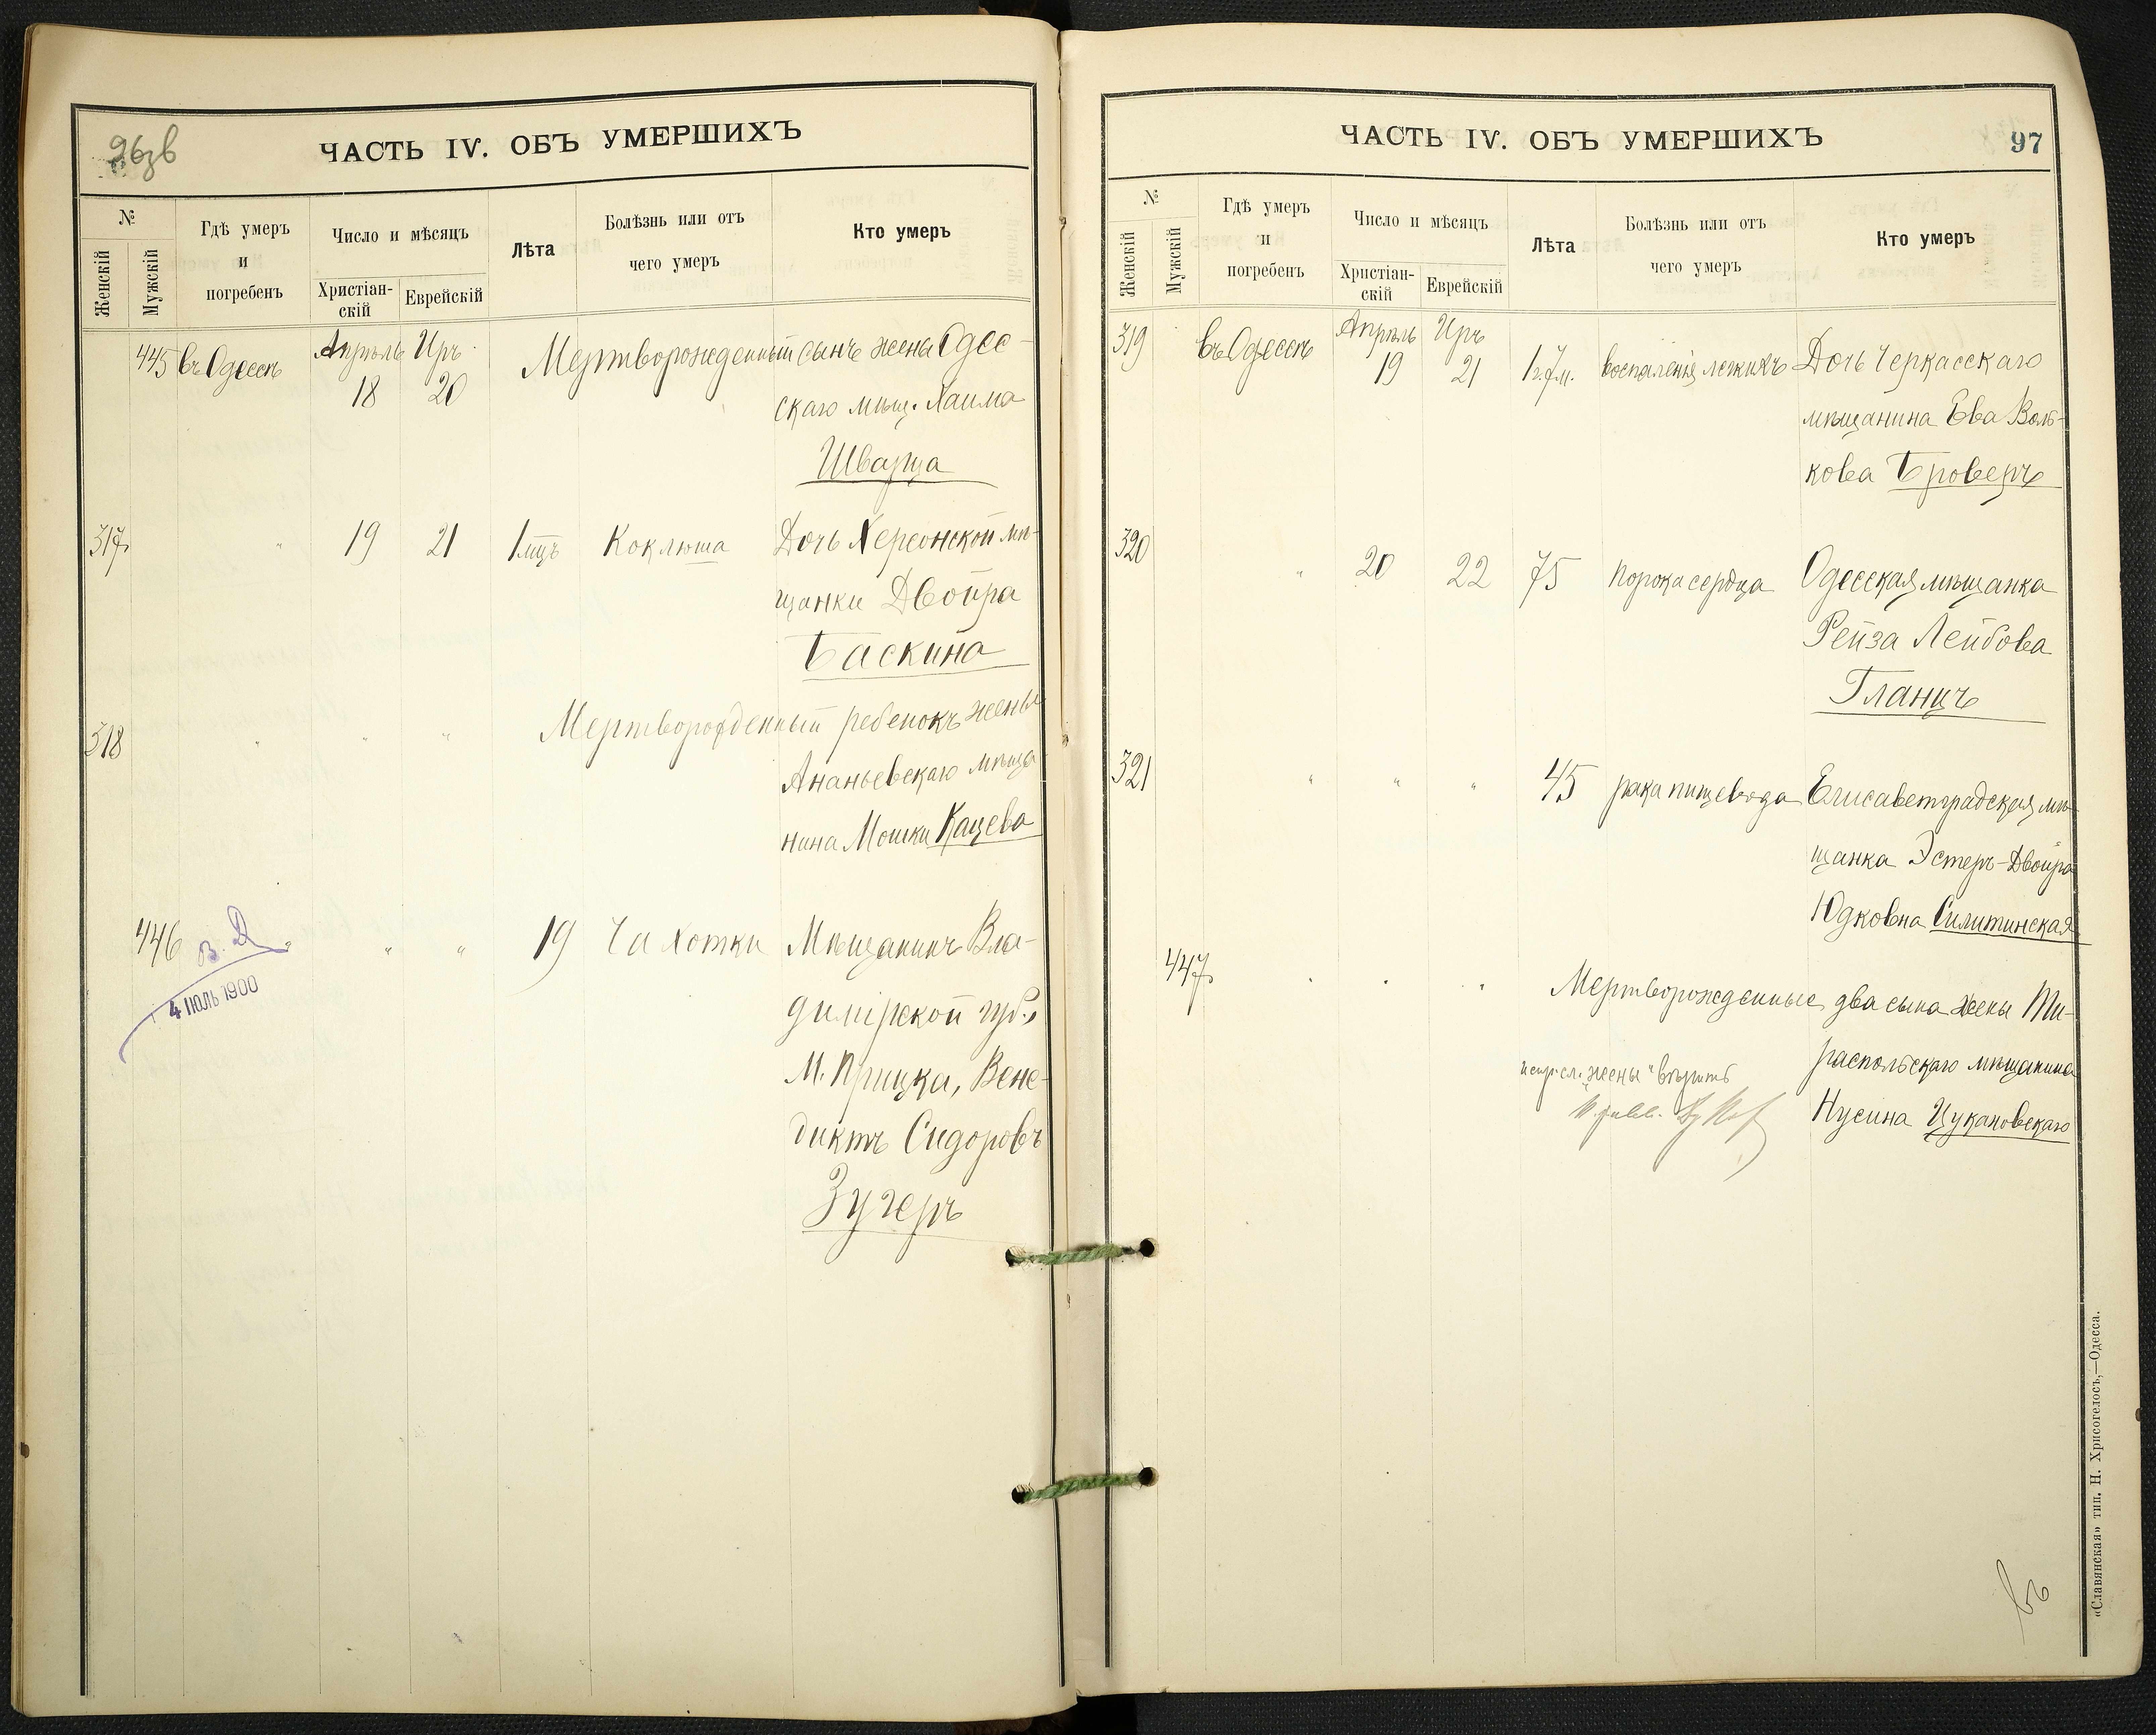 96зв
ЧАСТЬ IV. ОБЪ УМЕРШИХЪ
№
Женскій
Мужскій
Гдѣ умеръ
и
погребенъ
Число и мѣсяцъ
Христіан-
скій
Еврейскій
Лѣта
Болѣзнь или отъ
чего умеръ
Кто умеръ
445 въ Одессѣ Апрѣль Иръ Мертворожденный сынъ жены Одес-
18 20 скаго мѣщ. Хаима
Шварца
317 " 19 21 1 мѣцъ Коклюша Дочь Херсонской мѣ-
щанки Двойра
Баскина
318 " " " Мертворожденный ребенокъ жены
Ананьевскаго мѣща
нина Мошки Кацева
446 В. Д " " " 19 Чахотки Мѣщанинъ Вла-
4 ІЮЛЬ 1900
димірской губ.,
М. Прицка, Вене-
диктъ Сидоровъ
Зугеръ
ЧАСТЬ IV. ОБЪ УМЕРШИХЪ
97
№
Женскій
Мужскій
Гдѣ умеръ
и
погребенъ
Число и мѣсяцъ
Христіан-
скій
Еврейскій
Лѣта
Болѣзнь или отъ
чего умеръ
Кто умеръ
319 въ Одессѣ Апрѣль Иръ
19 21 1г.7м. воспаленія легкихъ Дочь Черкасскаго
мѣщанина Ева Воль-
кова Броверъ
320 " 20 22 75 порока сердца Одесская мѣщанка
Рейза Лейбова
Гланцъ
321 " " " 45 рака пищевода Елисаветградская мѣ-
щанка Эстеръ-Двойра
Юдковна Силитинская
447 " " " Мертворожденные два сына жены Ти-
распольскаго мѣщанина
испр. сл. "жены" вѣрить
Нусина Цукановскаго
«Славянская» тип. Н. Хрисогелосъ,—Одесса.